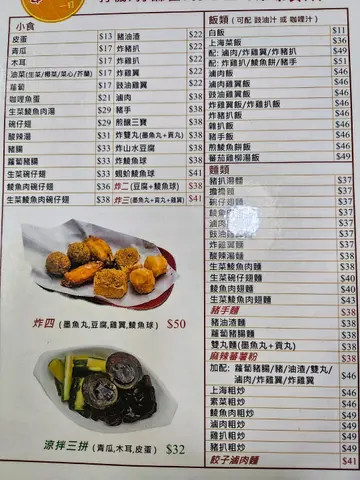 一日
小食
皮蛋 $13
青瓜 $17
木耳 $17
油菜(生菜/椰菜/菜心/芥蘭) $17
蘿蔔 $17
咖哩魚蛋 $21
生菜鯪魚肉湯 $29
碗仔翅 $29
酸辣湯 $31
豬腸 $33
蘿蔔豬腸 $33
生菜碗仔翅 $33
鯪魚肉碗仔翅 $36
生菜鯪魚肉碗仔翅 $38
豬油渣 $22
炸豬扒 $22
炸雞扒 $22
炸雞翼 $22
豉油雞翼 $22
滷肉 $38
豬手 $38
煎釀三寶 $38
炸雙丸(墨魚丸+貢丸) $38
炸山水豆腐 $38
炸鯪魚球 $38
蜆蚧鯪魚球 $41
炸二(豆腐+鯪魚球) $38
炸三(墨魚丸+貢丸+雞翼) $41
炸四(墨魚丸,豆腐,雞翼,鯪魚球) $50
涼拌三拼(青瓜,木耳,皮蛋) $32
飯類(可配 豉油汁 或 咖哩汁)
白飯 $11
上海菜飯 $36
配: 滷肉/炸雞翼/炸豬扒 $49
配: 炸雞扒/鯪魚餅/豬手 $51
滷肉飯 $46
滷肉雞翼飯 $46
豉油雞翼飯 $46
炸雞翼飯/炸雞扒飯 $46
炸豬扒飯 $46
雜扒飯 $46
豬手飯 $46
煎鯪魚餅飯 $46
蕃茄雞柳湯飯 $49
麵類
豬扒湯麵 $37
擔擔麵 $37
碗仔翅麵 $37
豉油 $37
炸雞翼麵 $37
酸辣湯麵 $38
生菜鯪魚肉麵 $38
生菜碗仔翅麵 $40
鯪魚肉翅麵 $40
生菜鯪魚肉翅麵 $43
豬手麵 $38
豬油渣麵 $38
蘿蔔豬腸麵 $38
雙丸麵(墨魚丸+貢丸) $38
麻辣蕃薯粉 $38
加配: 蘿蔔豬腸/豬/油渣/雙丸/
滷肉/炸雞扒/炸雞翼 $46
上海粗炒 $46
素菜粗炒 $46
鯪魚肉粗炒 $49
滷肉粗炒 $49
雞扒粗炒 $49
豬扒粗炒 $49
餃子滷肉麵 $41